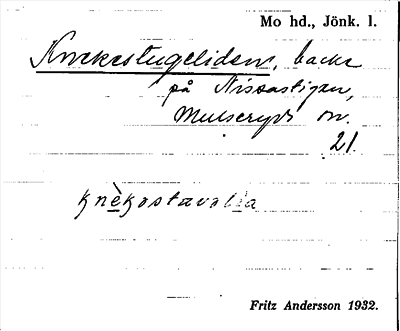 Mo hd., Jönk. l.
Knekestugeliden, backe
på Nissastigen,
Mulseryds sn.
21.
knèkostavolia
Fritz Andersson 1932.